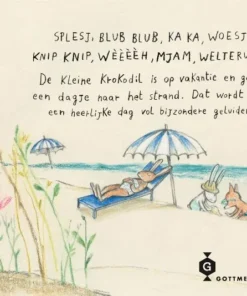 SPLESJ, BLUB BLUB, KA KA, WOESJ
KNIP KNIP, WÈÈÈÈH, MJAM, WELTER
De Kleine KroKodil is op vakantie en g
een dagje naar het strand. Dat wordt
een heerlijke dag vol bijzondere geluide
G
GOTTME